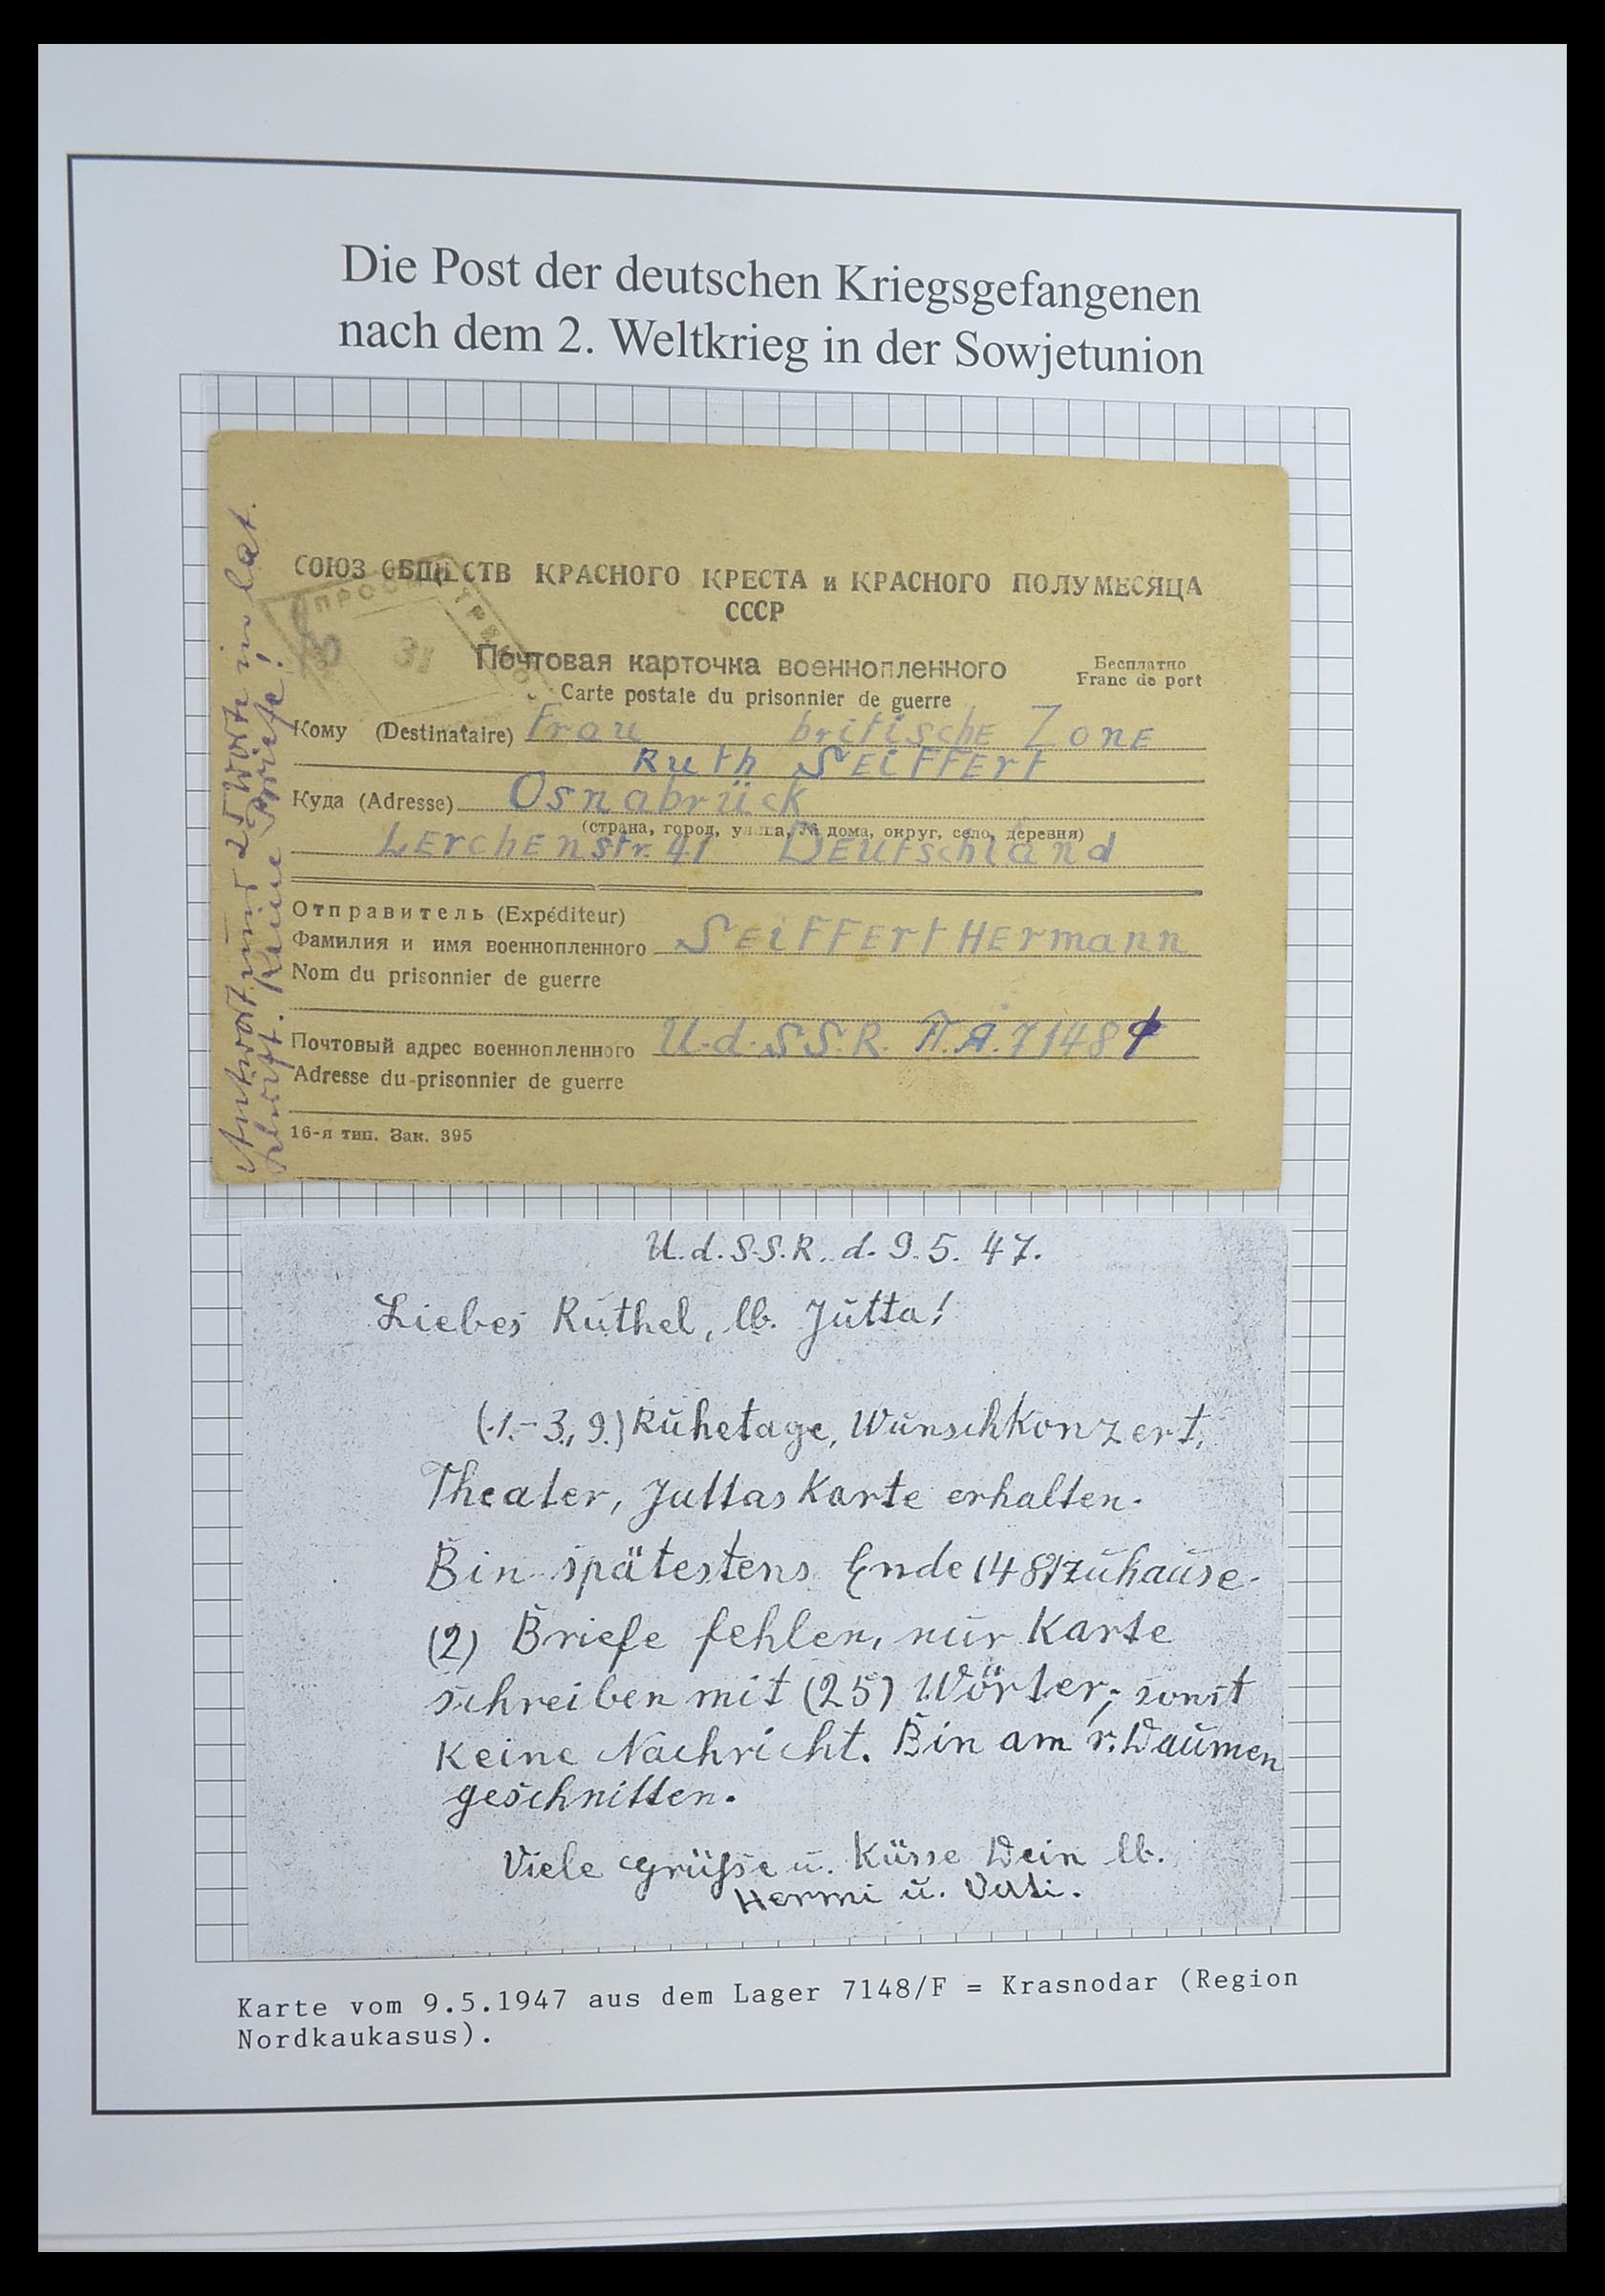 Die Post der deutschen Kriegsgefangenen
nach dem 2. Weltkrieg in der Sowjetunion
СОЮЗ ОБЩЕСТВ КРАСНОГО КРЕСТА и КРАСНОГО ПОЛУМЕСЯЦА
СССР
Почтовая карточка военнопленного
Бесплатно
Carte postale du prisonnier de guerre
Franc de port
Кому (Destinataire) Frau britische Zone
Ruth Seiffert
Куда (Adresse) Osnabrück
(страна, город, улица, № дома, округ, село, деревня)
Lerchenstr. 41 Deutschland
Отправитель (Expéditeur)
Фамилия и имя военнопленного Seiffert Hermann
Nom du prisonnier de guerre
Почтовый адрес военнопленного U.d.S.S.R. П.Я. 7148
Adresse du prisonnier de guerre
16-я тип. Зак. 395
Antwort mit 25 Worte in lat.
schrift. Keine Briefe!
31
U.d.S.S.R. d. 9.5.47.
Liebes Ruthel, lb. Jutta!
(1.-3., 9.) Ruhetage, Wunschkonzert,
Theater, Juttas Karte erhalten.
Bin spätestens Ende (48) zuhause.
(2) Briefe fehlen, nur Karte
schreiben mit (25) Wörter; sonst
keine Nachricht. Bin am r. Daumen
geschnitten.
Viele Grüße u. Küsse Dein lb.
Hermi u. Vati.
Karte vom 9.5.1947 aus dem Lager 7148/F = Krasnodar (Region
Nordkaukasus).